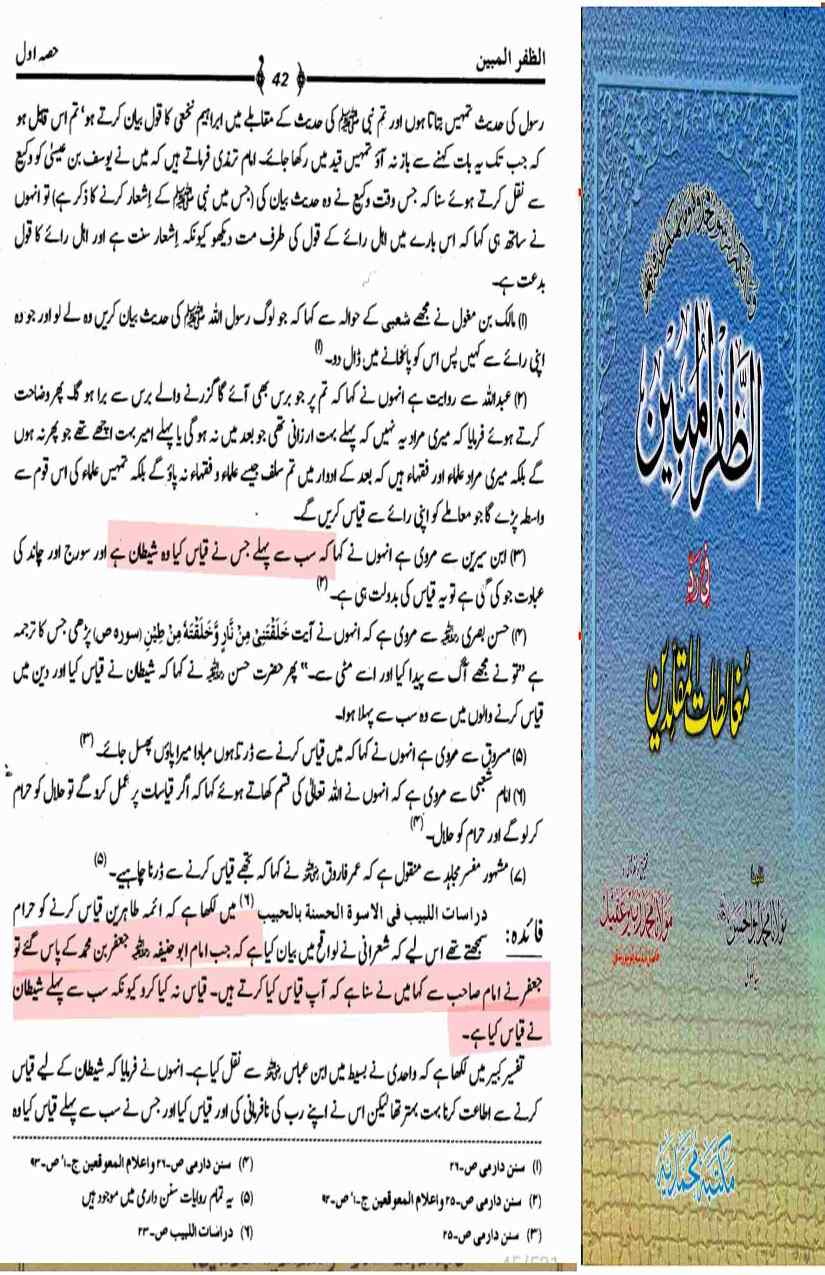 الظفر المبین
42
حصہ اول
رسول کی حدیث تمہیں بتاتا ہوں اور تم نبی ﷺ کی حدیث کے مقابلے میں ابراہیم نخعی کا قول بیان کرتے ہو' تم اس قابل ہو
کہ جب تک یہ بات کہنے سے باز نہ آؤ تمہیں قید میں رکھا جائے۔ امام ترمذی فرماتے ہیں کہ میں نے یوسف بن عیسیٰ کو وکیع
سے نقل کرتے ہوئے سنا کہ جس وقت وکیع نے وہ حدیث بیان کی (جس میں نبی ﷺ کے اِشعار کرنے کا ذکر ہے) تو انہوں
نے ساتھ ہی کہا کہ اس بارے میں اہل رائے کے قول کی طرف مت دیکھو کیونکہ اِشعار سنت ہے اور اہل رائے کا قول
بدعت ہے۔
(۱) مالک بن مغول نے مجھے شعبی کے حوالہ سے کہا کہ جو لوگ رسول اللہ ﷺ کی حدیث بیان کریں وہ لے لو اور جو وہ
اپنی رائے سے کہیں پس اس کو پائخانے میں ڈال دو۔ (۱)
(۲) عبداللہ سے روایت ہے انہوں نے کہا کہ تم پر جو برس بھی آئے گا گزرنے والے برس سے برا ہو گا۔ پھر وضاحت
کرتے ہوئے فرمایا کہ میری مراد یہ نہیں کہ پہلے بہت ارزانی تھی جو بعد میں نہ ہو گی یا پہلے امیر بہت اچھے تھے جو پھر نہ ہوں
گے بلکہ میری مراد علماء اور فقہاء ہیں کہ بعد کے ادوار میں تم سلف جیسے علماء و فقہاء نہ پاؤ گے بلکہ تمہیں علماء کی اس قوم سے
واسطہ پڑے گا جو معاملے کو اپنی رائے سے قیاس کریں گے۔
(۳) ابن سیرین سے مروی ہے انہوں نے کہا کہ سب سے پہلے جس نے قیاس کیا وہ شیطان ہے اور سورج اور چاند کی
عبادت جو کی گئی ہے تو یہ قیاس کی بدولت ہی ہے۔ (۲)
(۴) حسن بصری رضی اللہ عنہ سے مروی ہے کہ انہوں نے آیت خَلَقْتَنِیْ مِنْ نَّارٍ وَّخَلَقْتَهٗ مِنْ طِیْنٍ (سورہ ص) پڑھی جس کا ترجمہ
ہے "تو نے مجھے آگ سے پیدا کیا اور اسے مٹی سے۔" پھر حضرت حسن رضی اللہ عنہ نے کہا کہ شیطان نے قیاس کیا اور دین میں
قیاس کرنے والوں میں سے وہ سب سے پہلا ہوا۔
(۵) مسروق سے مروی ہے انہوں نے کہا کہ میں قیاس کرنے سے ڈرتا ہوں مبادا میرا پاؤں پھسل جائے۔ (۳)
(۶) امام شعبی سے مروی ہے کہ انہوں نے اللہ تعالیٰ کی قسم کھاتے ہوئے کہا کہ اگر قیاسات پر عمل کرو گے تو حلال کو حرام
کر لو گے اور حرام کو حلال۔ (۴)
(۷) مشہور مفسر مجاہد سے منقول ہے کہ عمر فاروق رضی اللہ عنہ نے کہا کہ تجھے قیاس کرنے سے ڈرنا چاہیے۔ (۵)
فائدہ: دراسات اللبیب فی الاسوۃ الحسنۃ بالحبیب (۶) میں لکھا ہے کہ ائمہ طاہرین قیاس کرنے کو حرام
سمجھتے تھے اس لیے کہ شعرانی نے لواقح میں بیان کیا ہے کہ جب امام ابو حنیفہ رضی اللہ عنہ جعفر بن محمد کے پاس گئے تو
جعفر نے امام صاحب سے کہا میں نے سنا ہے کہ آپ قیاس کیا کرتے ہیں۔ قیاس نہ کیا کرو کیونکہ سب سے پہلے شیطان
نے قیاس کیا ہے۔
تفسیر کبیر میں لکھا ہے کہ واحدی نے بسیط میں ابن عباس رضی اللہ عنہ سے نقل کیا ہے۔ انہوں نے فرمایا کہ شیطان کے لیے قیاس
کرنے سے اطاعت کرنا بہت بہتر تھا لیکن اس نے اپنے رب کی نافرمانی کی اور قیاس کیا اور جس نے سب سے پہلے قیاس کیا وہ
(۱) سنن دارمی ص۔۲۶
(۲) سنن دارمی ص۔۲۵ و اعلام الموقعین ج۔۱' ص۔۹۲
(۳) سنن دارمی ص۔۲۵
(۴) سنن دارمی ص۔۲۶ و اعلام الموقعین ج۔۱' ص۔۹۳
(۵) یہ تمام روایات سنن دارمی میں موجود ہیں
(۶) دراسات اللبیب ص۔۲۳
الظَّفَرُ المُبِین
فی رَدِّ
مُغالطات المقلِّدین
مولانا محمد ابوالحسن
مکتبہ محمدیہ